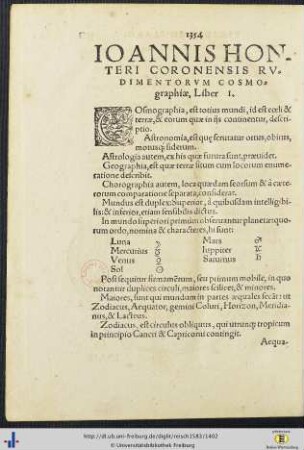 1354
IOANNIS HON-
TERI CORONENSIS RV-
DIMENTORVM COSMO-
graphiæ, Liber I.
COsmographia, est totius mundi, id est cœli &
terræ, & eorum quæ in ijs continentur, descri-
ptio.
Astronomia, est quę scrutatur ortus, obitus,
motusq́; siderum.
Astrologia autem, ex his quæ futura sunt, præuidet.
Geographia, est quæ terræ situm cum locorum enume-
ratione describit.
Chorographia autem, loca quædam seorsum & à cæ-
terorum comparatione separata, considerat.
Mundus est duplex: Superior, à quibusdam intelligibi-
lis: & inferior, etiam sensibilis dictus.
In mundo superiori primùm obseruantur planetæ, quo-
rum ordo, nomina & characteres, hi sunt:
Luna ☽ Mars ♂
Mercurius ☿ Iuppiter ♃
Venus ♀ Saturnus ♄
Sol ☉
Post sequitur firmamẽtum, seu primum mobile, in quo
notantur duplices circuli, maiores scilicet, & minores.
Maiores, sunt qui mundum in partes æquales secãt: ut
Zodiacus, Aequator, gemini Coluri, Horizon, Meridia-
nus, & Lacteus.
Zodiacus, est circulus obliquus, qui utrunq; tropicum
in principio Cancri & Capricorni contingit.
Aequa-
http://dl.ub.uni-freiburg.de/diglit/reisch1583/1402
© Universitätsbibliothek Freiburg